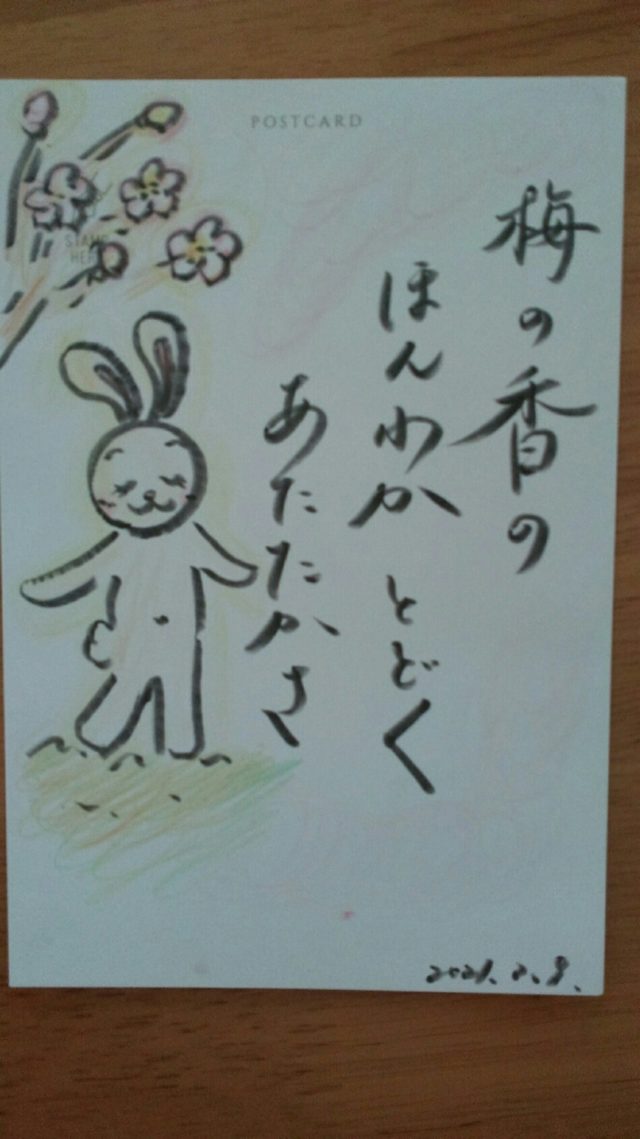 POSTCARD
STAMP
HERE
梅の香の
ほんわか とどく
あたたかさ
2021.2.8.